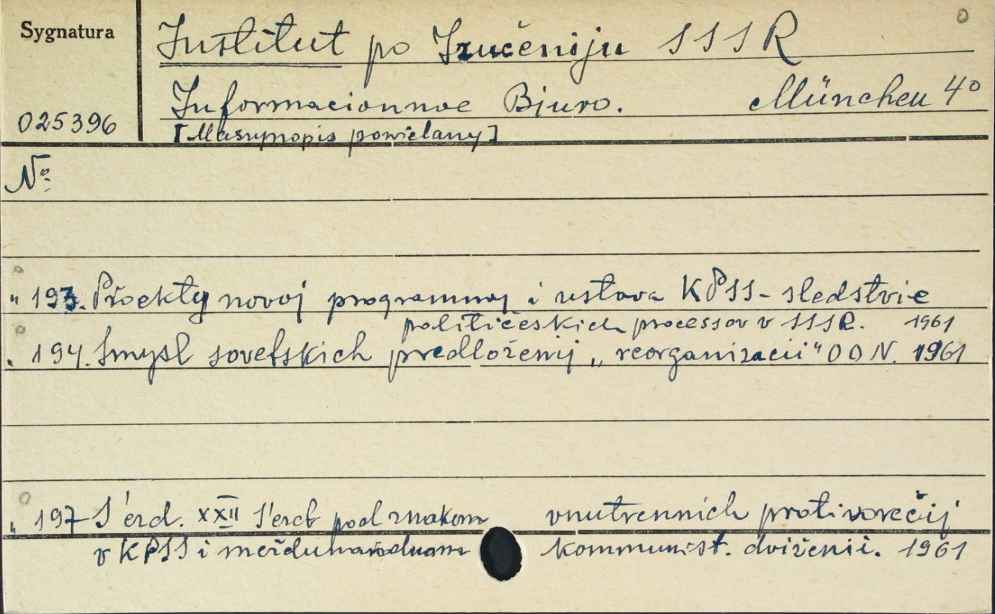 Sygnatura
025396
Institut po Izučeniju SSSR
Informacionnoe Bjuro. München 4°
[Maszynopis powielany]
N°
" 193. Proekty novoj programmoj i ustava KPSS - sledstvie
političeskich processov v SSSR. 1961
" 194. Smysl sovetskich predloženij „reorganizacii" OON. 1961
" 197 S'ezd. XXII S'ezd pod znakom vnutrennich protivorečij
v KPSS i meždunarodnom kommunist. dviženii. 1961